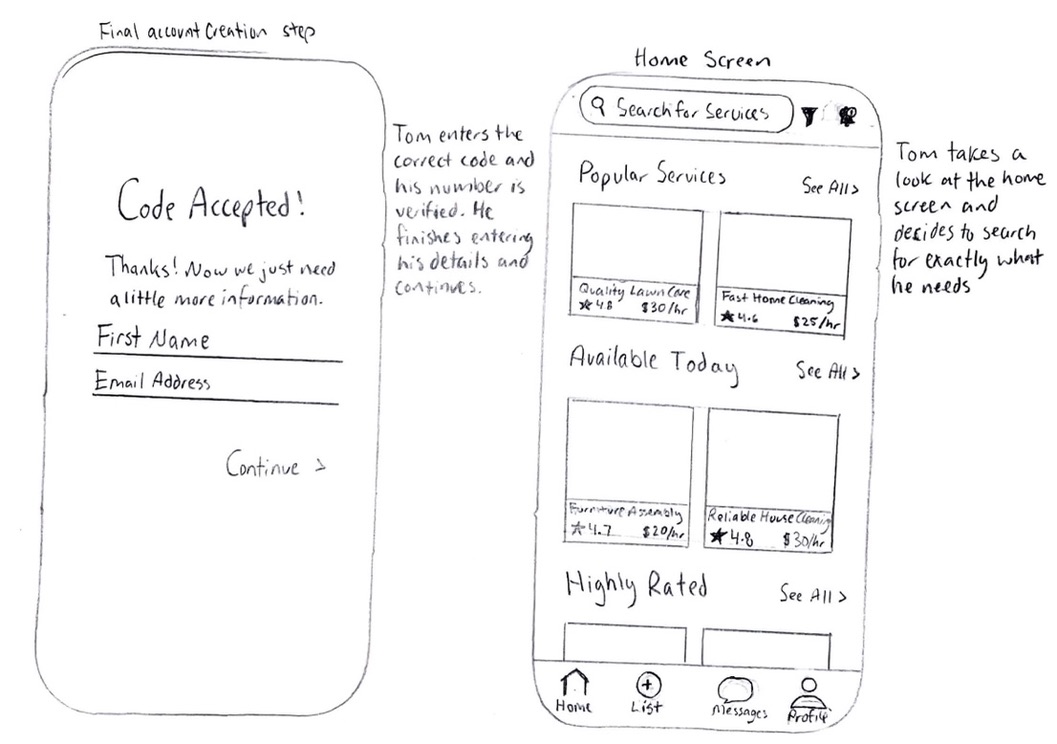 Final account Creation step
Code Accepted!
Thanks! Now we just need
a little more information.
First Name
Email Address
Continue >
Tom enters the
correct code and
his number is
verified. He
finishes entering
his details and
continues.
Home Screen
Search for Services
Popular Services
See All >
Quality Lawn Care
★ 4.8 $30/hr
Fast Home Cleaning
★ 4.6 $25/hr
Available Today
See All >
Furniture Assembly
★ 4.7 $20/hr
Reliable House Cleaning
★ 4.8 $30/hr
Highly Rated
See All >
Home
List
Messages
Profile
Tom takes a
look at the home
screen and
decides to search
for exactly what
he needs